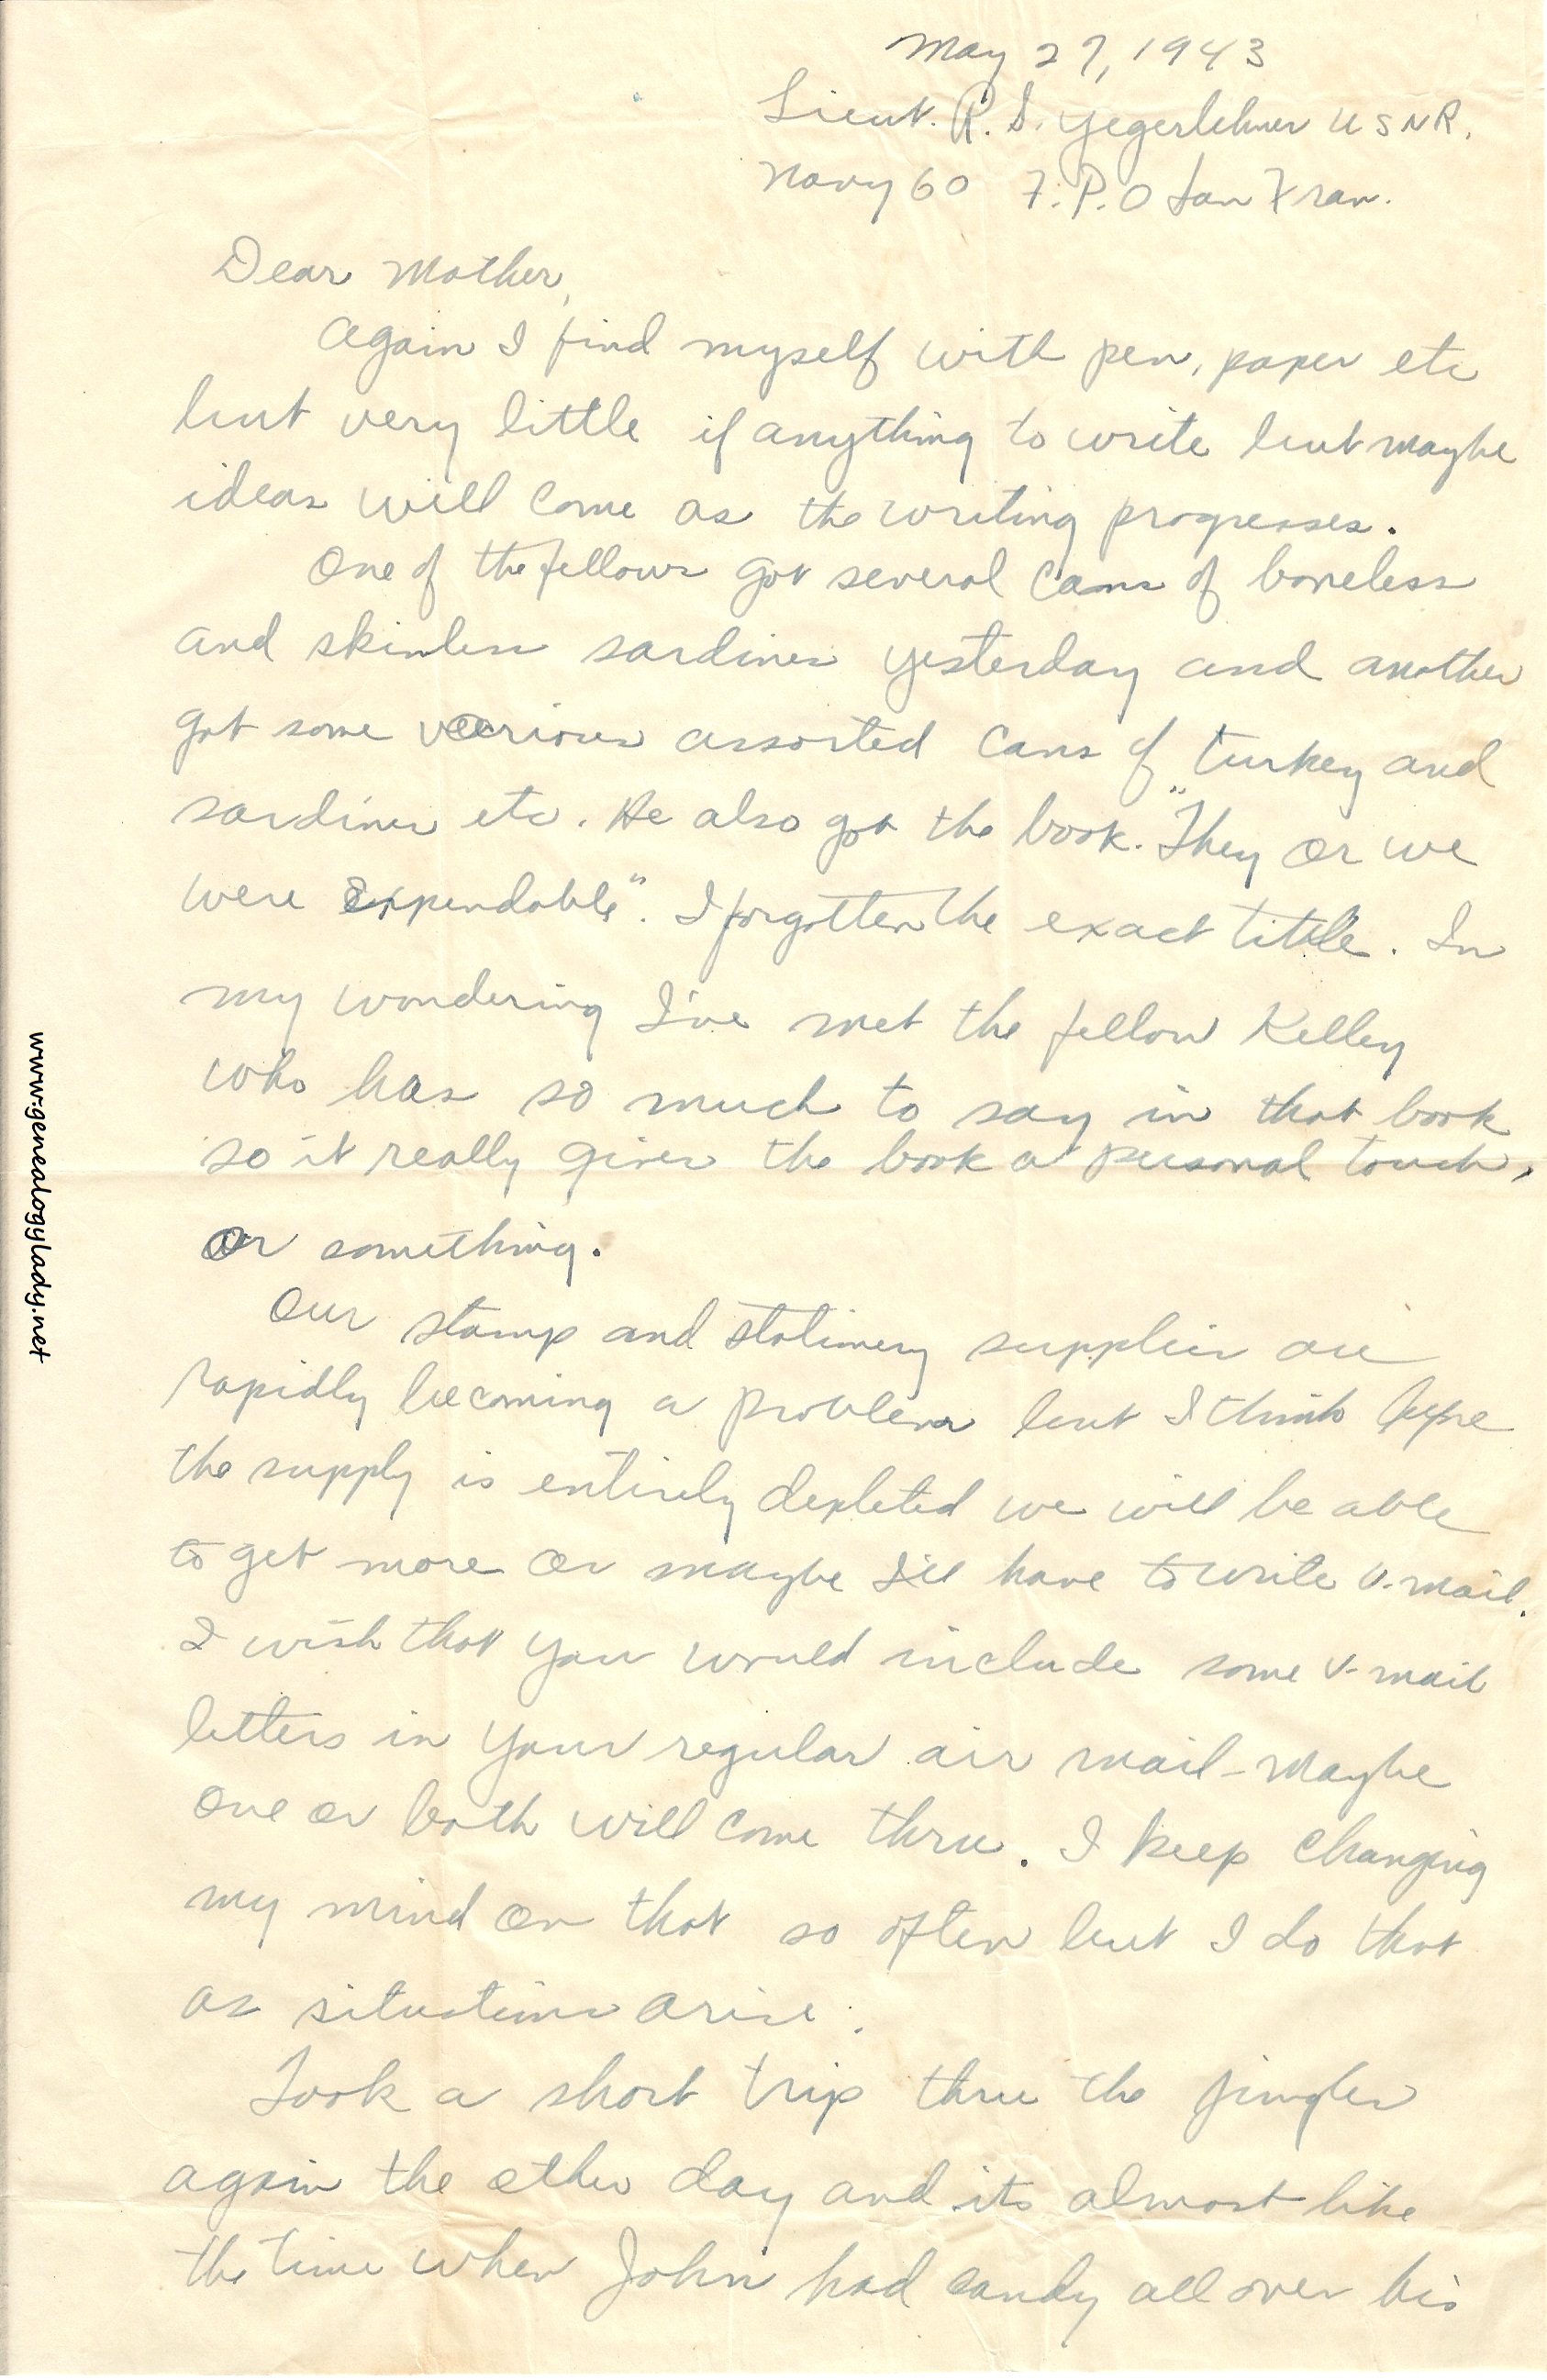 May 27, 1943
Lieut. R. S. Yegerlehner USNR.
Navy 60 F.P.O San Fran.
Dear Mother,
Again I find myself with pen, paper etc
but very little if anything to write but maybe
ideas will come as the writing progresses.
One of the fellows got several cans of boneless
and skinless sardines yesterday and another
got some various assorted cans of turkey and
sardines etc. He also got the book. "They or we
were Expendable". I forgotten the exact tittle. In
my wondering I've met the fellow Kelley
who has so much to say in that book
so it really gives the book a personal touch,
or something.
Our stamp and stationery supplies are
rapidly becoming a problem but I think before
the supply is entirely depleted we will be able
to get more or maybe I'll have to write V-mail.
I wish that you would include some V-mail
letters in your regular air mail - maybe
one or both will come thru. I keep changing
my mind on that so often but I do that
as situations arise.
Took a short trip thru the jungles
again the other day and its almost like
the time when John had candy all over his
www.genealogylady.net